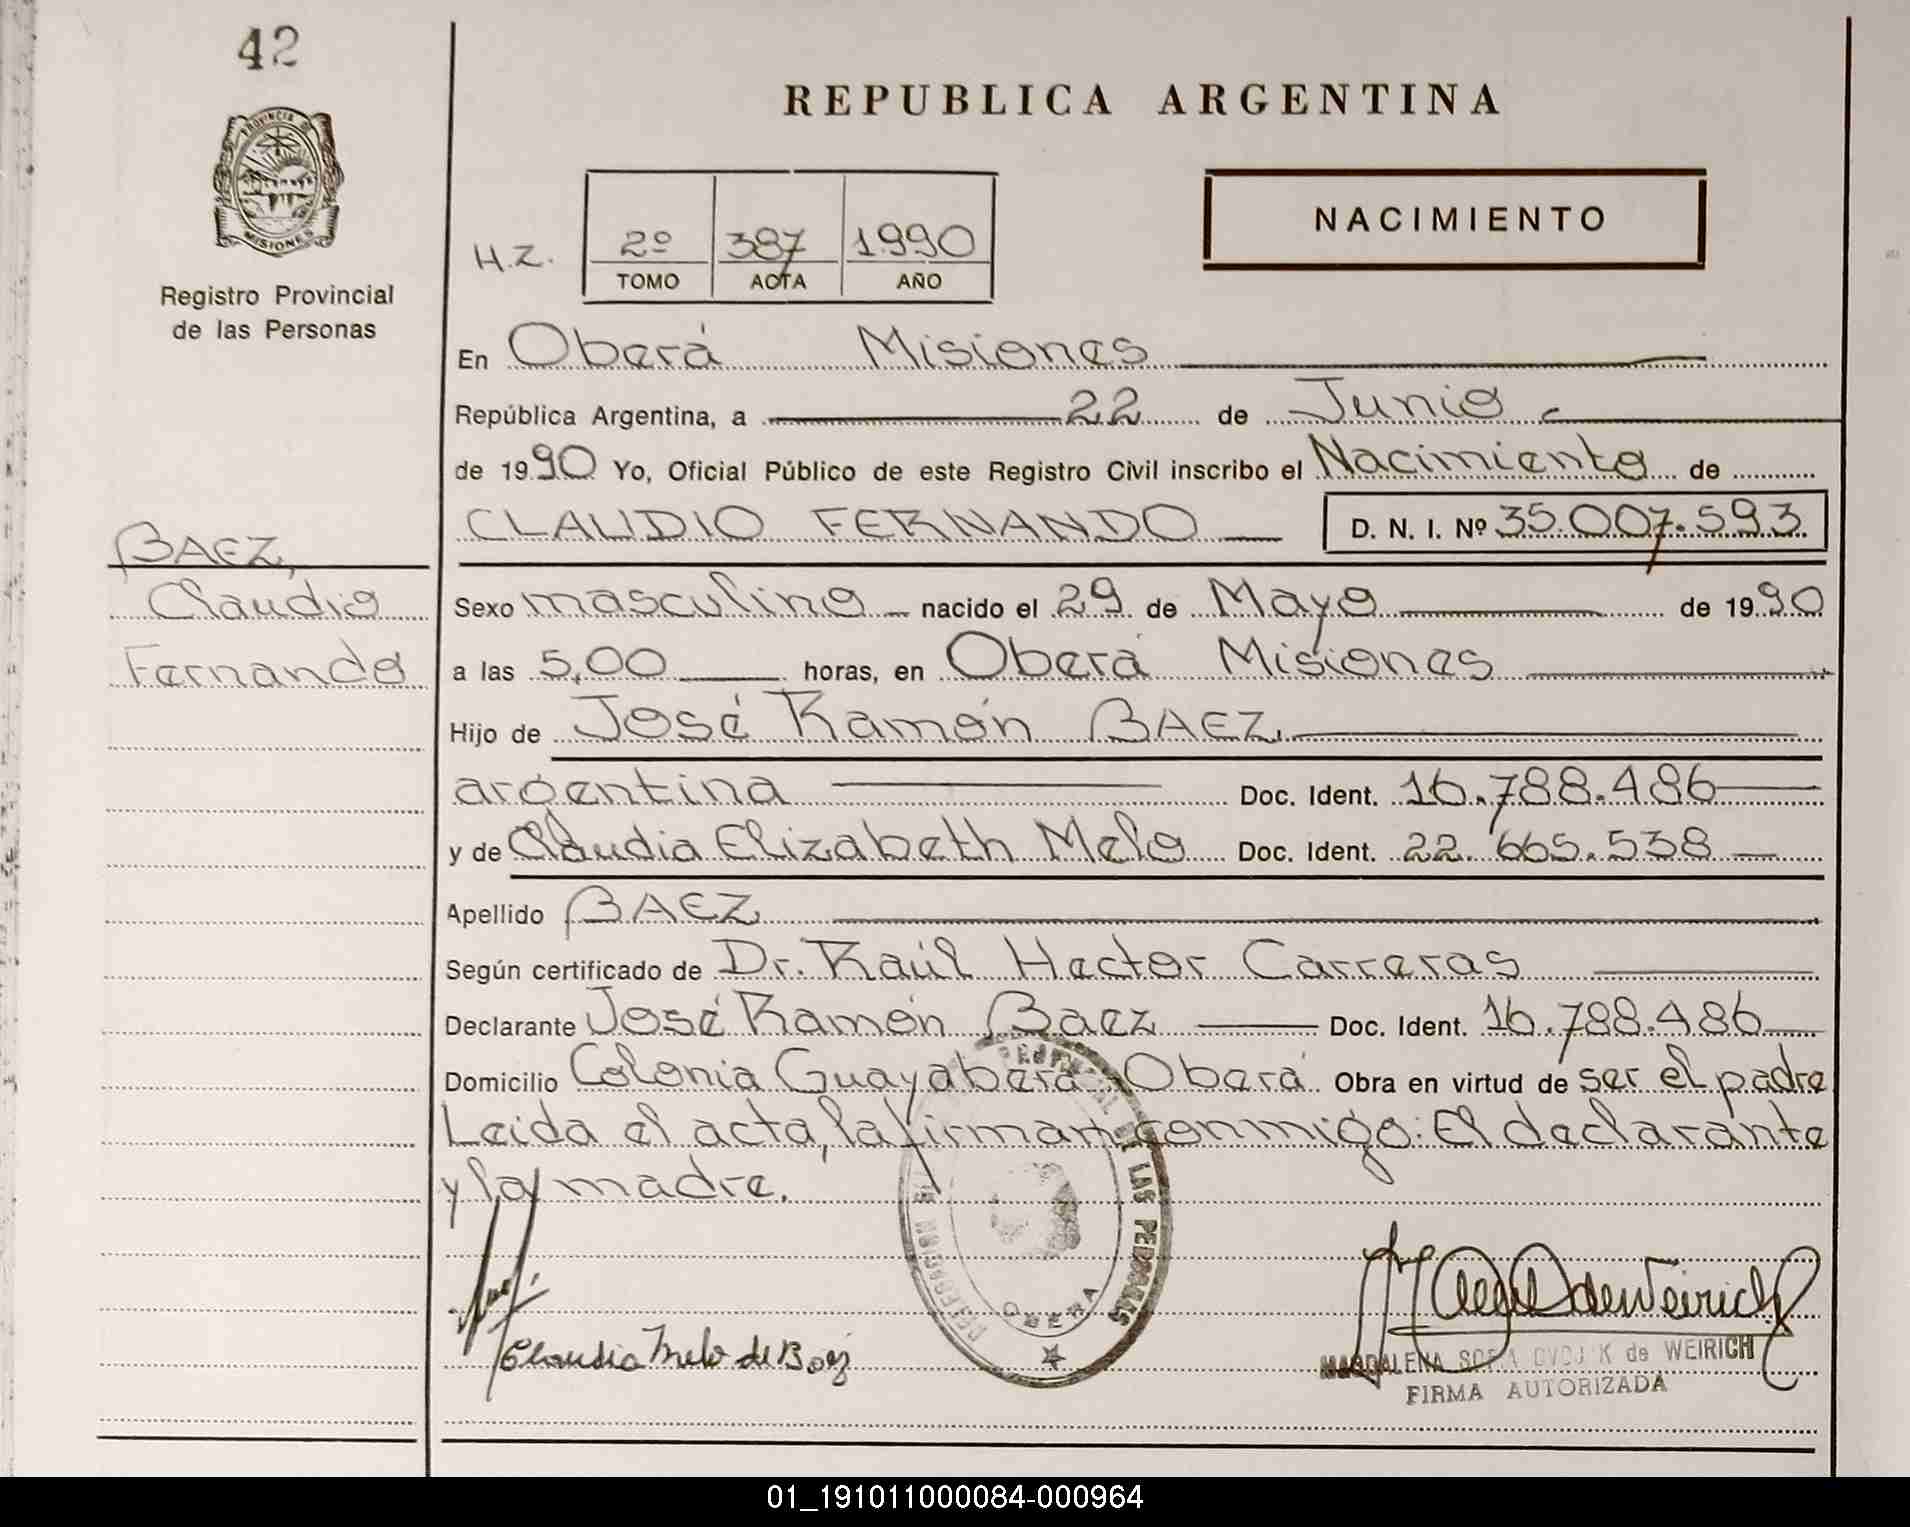 42
PROVINCIA DE
MISIONES
Registro Provincial
de las Personas
BAEZ,
Claudio
Fernando
REPUBLICA ARGENTINA
NACIMIENTO
H.Z.
2º 387 1.990
TOMO ACTA AÑO
En Oberá Misiones
República Argentina, a 22 de Junio
de 1990 Yo, Oficial Público de este Registro Civil inscribo el Nacimiento de
CLAUDIO FERNANDO D. N. I. Nº 35.007.593
Sexo masculino nacido el 29 de Mayo de 1990
a las 5,00 horas, en Oberá Misiones
Hijo de José Ramón BAEZ
argentina Doc. Ident. 16.788.486
y de Claudia Elizabeth Melo Doc. Ident. 22.665.538
Apellido BAEZ
Según certificado de Dr. Raúl Hector Carreras
Declarante José Ramón Baez Doc. Ident. 16.788.486
Domicilio Colonia Guayabera Oberá Obra en virtud de ser el padre
Leida el acta, la firman conmigo: El declarante
y la madre.
DE LAS PERSONAS
OBERA
Claudia Melo de Baez
de Weirich
MAGDALENA SOFIA DVOJAK de WEIRICH
FIRMA AUTORIZADA
01_191011000084-000964